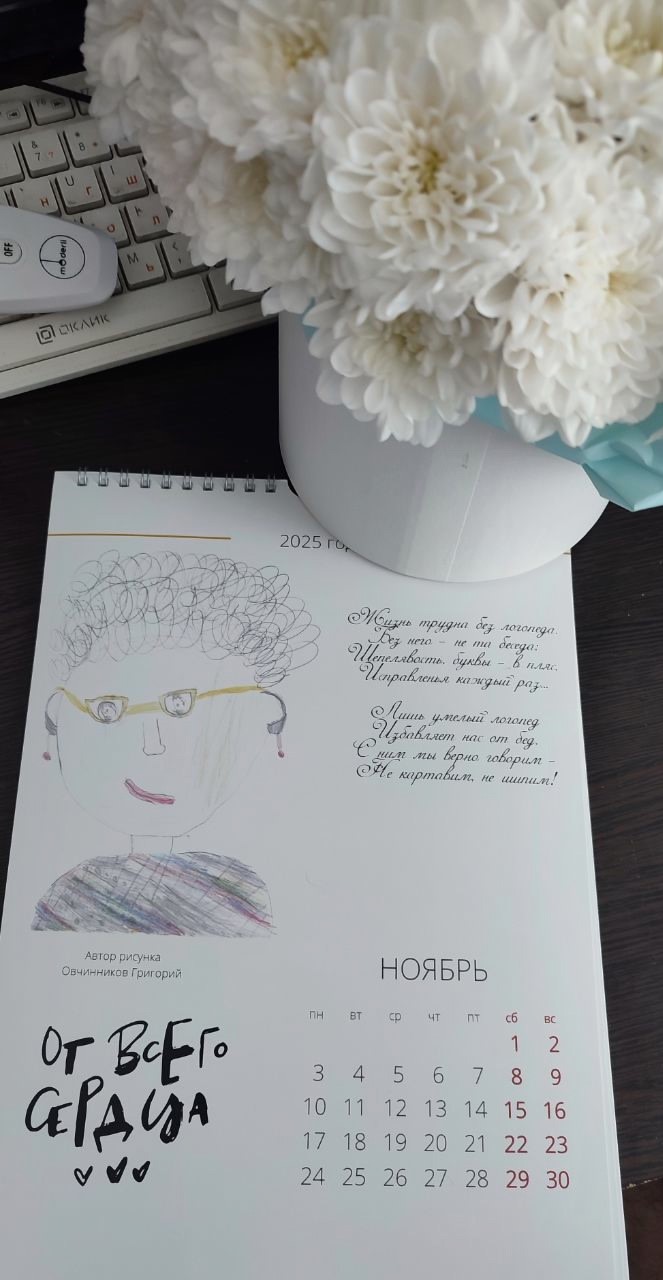 & 7 ?
* 8
U Г
I Ш
Н
О
К Л
М Ь
OFF
moderli
ОКЛИК
2025 год
Жизнь трудна без логопеда.
Без него - не та беседа:
Шепелявость, буквы - в пляс,
Исправленья каждый раз...
Лишь умелый логопед
Избавляет нас от бед.
С ним мы верно говорим -
Не картавим, не шипим!
Автор рисунка
Овчинников Григорий
ОТ ВСЕГО
СЕРДЦА
НОЯБРЬ
пн вт ср чт пт сб вс
1 2
3 4 5 6 7 8 9
10 11 12 13 14 15 16
17 18 19 20 21 22 23
24 25 26 27 28 29 30